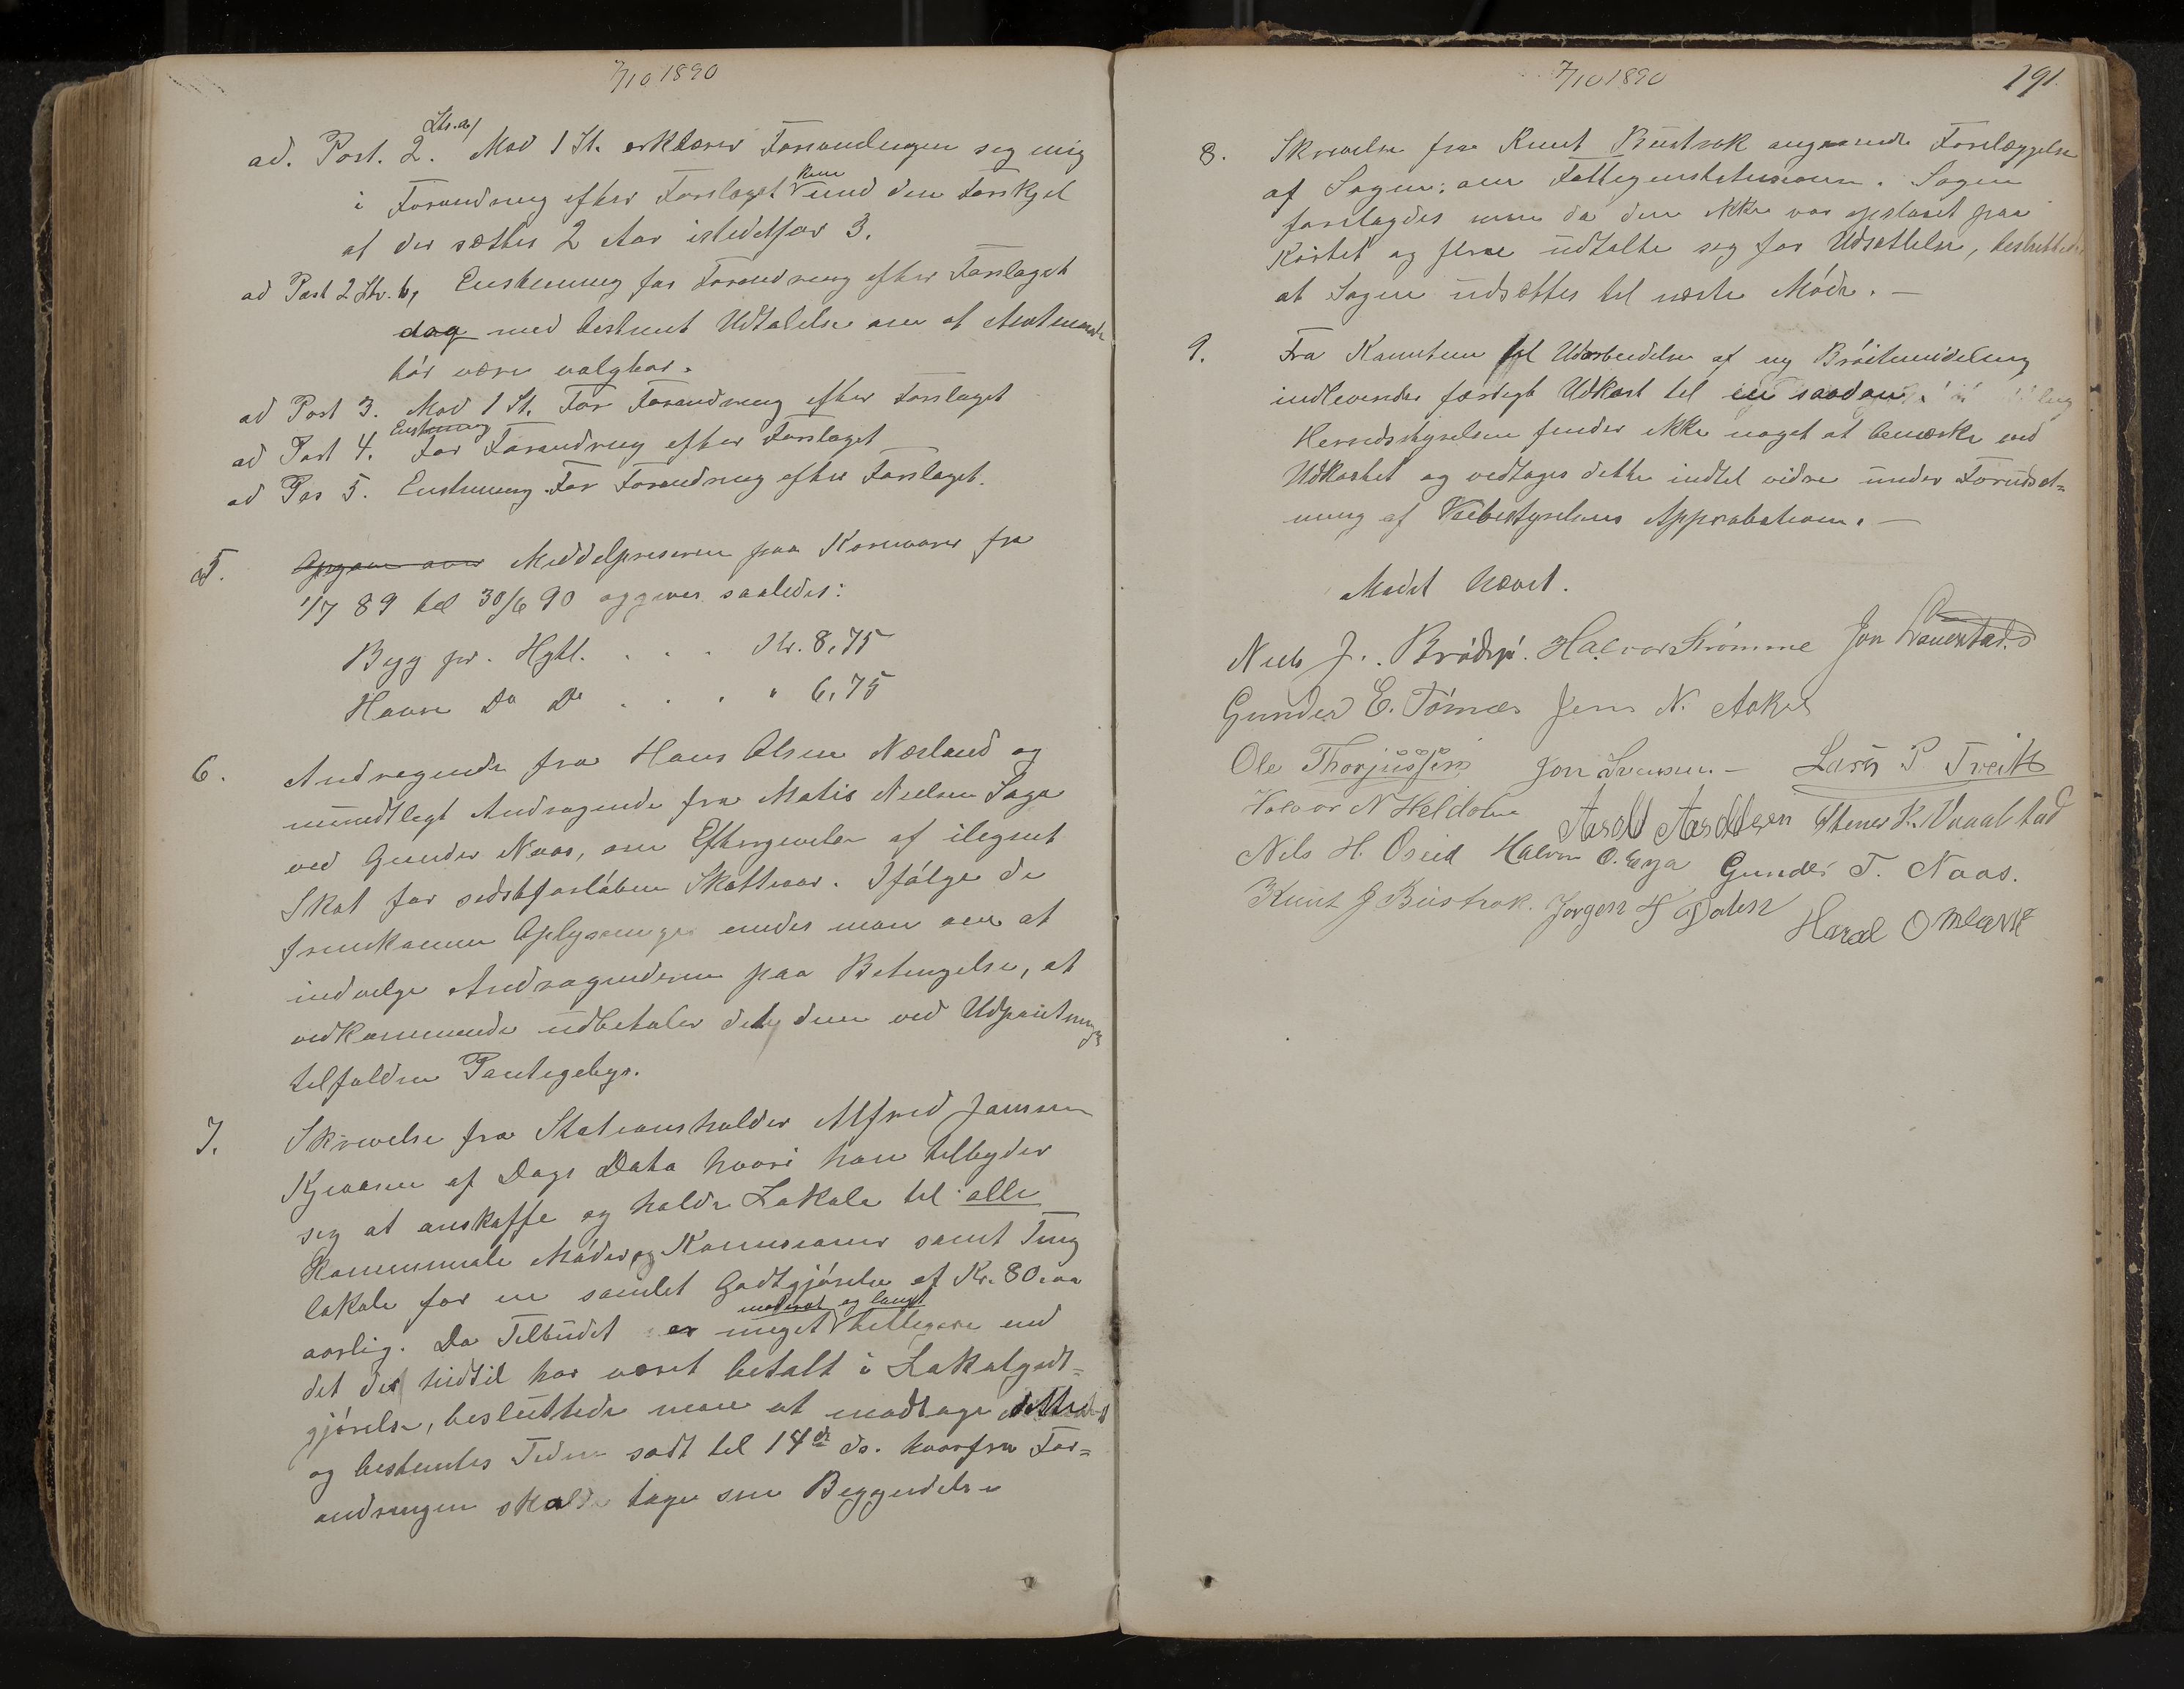 7/10 1890
ad. Post. 2. Ltr. a/ Mod 1 St. erklærer Forsamlingen seg enig
i Forandring efter Forslaget kun med den Forskjel
at der sættes 2 Aar istedetfor 3.
ad Post 2 Ltr. b, Enstemmig for Forandring efter Forslaget
dog med bestemt Udtalelse om at Amtmand
bør være valgbar.
ad Post 3. Mod 1 St. For Forandring efter Forslaget
ad Post 4. Enstemmig For Forandring efter Forslaget
ad Pos 5. Enstemmig For Forandring efter Forslaget.
5. Opgave over Middelpriserne paa Kornvarer fra
1/7 89 til 30/6 90 opgives saaledes:
Byg pr. Hgtl. . . . Kr. 8,75
Havre Do Do . . . " 6,75
6. Andragende fra Hans Olsen Næsland og
mundtlegt Andragende fra Matis Nielsen Saga
ved Gunder Naas, om Eftergivelse af ilignet
Skat for sidstforløbne Skatteaar. Ifølge de
fremkomne Oplysninger enedes man om at
indvilge Andragenderne paa Betingelse, at
vedkommende udbetaler det dem ved Udpantnings
tilfaldne Pantegebyr.
7. Skrivelse fra Stationsholder Alfred Jansen
af Dags Dato hvori han tilbyder
seg at anskaffe og holde Lokale til alle
Kommunale Møder og Kommissioner samt Ting
lokale for en samlet Godtgjørelse af Kr. 80.00
aarlig. Da Tilbudet er meget moderat og langt billigere end
det der hidtil har været betalt i Lokalgodt=
gjørelse, besluttede man at modtage dette
og bestemtes Tiden sadt til 14de ds. hvorfra For=
andringen skal tage sin Begyndelse
7/10 1890
191.
8. Skrivelse fra Knut Bustrak angaaende Forelæggelse
af Sagen om Fattigenstitusionen. Sagen
forelagdes men da den ikke var opslaaet paa
Kortet og flere udtalte seg for Udsættelse, besluttedes
at Sagen udsættes til næste Møde. —
9. Fra Komiteen til Udarbeidelse af ny Brøiteindeling
indleveredes færdigt Udkast til en saadan.
Herredsstyrelsen finder ikke noget at bemærke ved
Udkastet og vedtages dette indtil videre under Forudsæt=
ning af Veibestyrelsens Approbation. —
Mødet hævet.
Niels J. Brødsjø. Halvor Strømme Jon
Gunder E. Tørnæs Jens N. Aakre
Ole Thorjussen Jon Svensen — Lars P. Treit
Halvor N Heldalen Aasold Aasoldsen Stener K. Vraalstad
Nils H. Oseid Halvor O. Egja Gunder T. Naas.
Knut J Bustrak. Jørgen H Dalen
Haral Omland